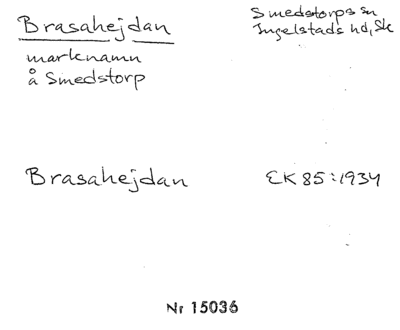 Brasahejdan
Smedstorps sn
Ingelstads hd, Sk
marknamn
å Smedstorp
Brasahejdan
EK 85:1934
Nr 15036